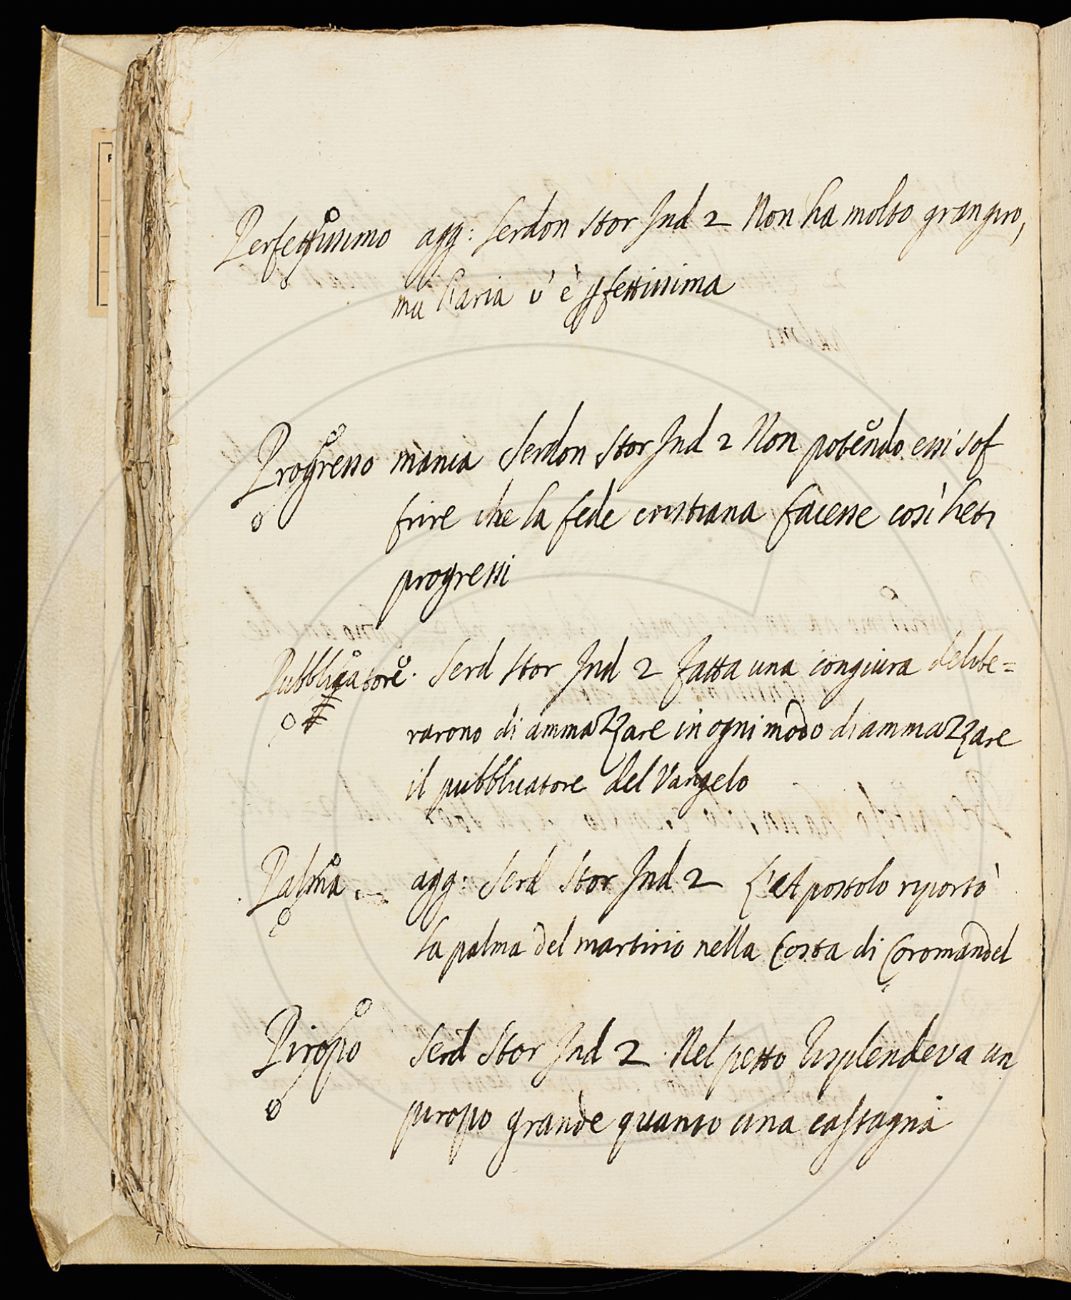 Perfettissimo agg: Serdon Stor Ind 2 Non ha molto gran giro,
ma l'aria v' è pfettissima
Progresso manca Serdon Stor Ind 2 Non potendo essi sof
frire che la fede cristiana facesse così lieti
progressi
Pubblicatore. Serd Stor Ind 2 fatta una congiura delibe=
rarono di ammazzare in ogni modo di ammazzare
il pubblicatore del Vangelo
Palma agg: Serd Stor Ind 2 L'Apostolo riportò
la palma del martirio nella Costa di Coromandel
Piropo Serd Stor Ind 2 Nel petto risplendeva un
piropo grande quanto una castagna